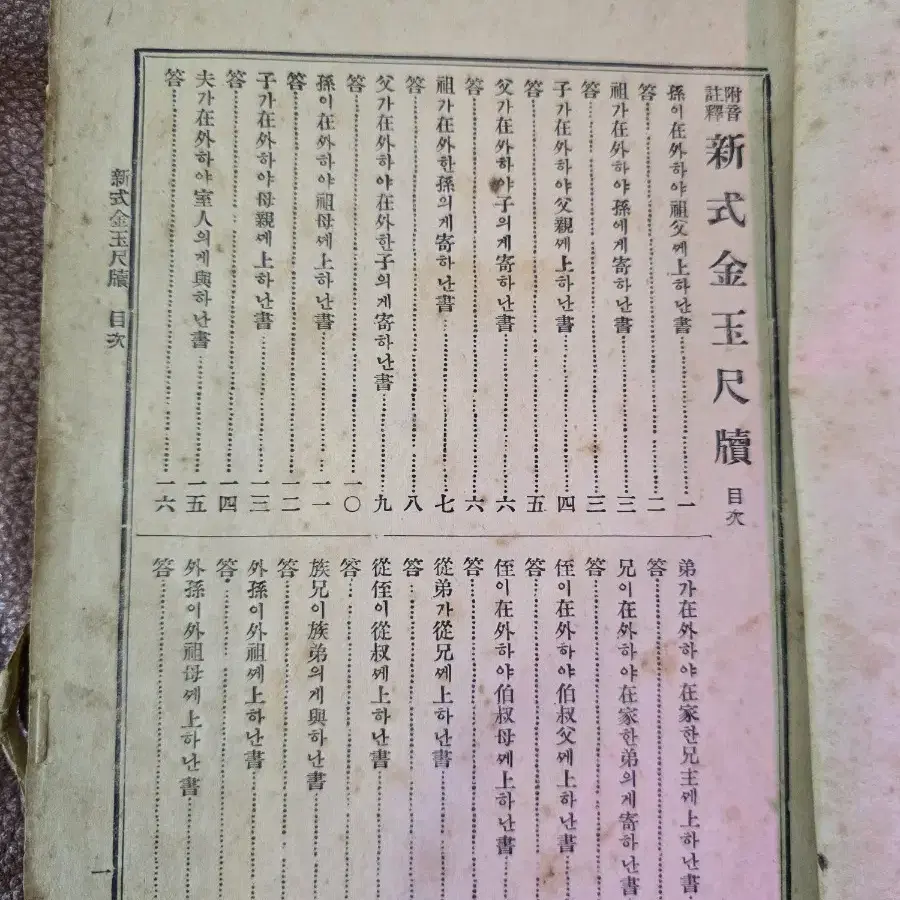 附音註釋 新式金玉尺牘 目次
孫이在外하야祖父ᄭᅦ上하난書 一
答 二
祖가在外하야孫에게寄하난書 三
答 三
子가在外하야父親ᄭᅦ上하난書 四
答 五
父가在外하야子의게寄하난書 六
答 六
祖가在外한孫의게寄하난書 七
答 八
父가在外하야在外한子의게寄하난書 九
答 一〇
孫이在外하야祖母ᄭᅦ上하난書 一一
答 一二
子가在外하야母親ᄭᅦ上하난書 一三
答 一四
夫가在外하야室人의게與하난書 一五
答 一六
弟가在外하야在家한兄主ᄭᅦ上하난書
答
兄이在外하야在家한弟의게寄하난書
答
侄이在外하야伯叔父ᄭᅦ上하난書
答
侄이在外하야伯叔母ᄭᅦ上하난書
答
從弟가從兄ᄭᅦ上하난書
答
從侄이從叔ᄭᅦ上하난書
答
族兄이族弟의게與하난書
答
外孫이外祖ᄭᅦ上하난書
答
外孫이外祖母ᄭᅦ上하난書
答
新式金玉尺牘 目次
一